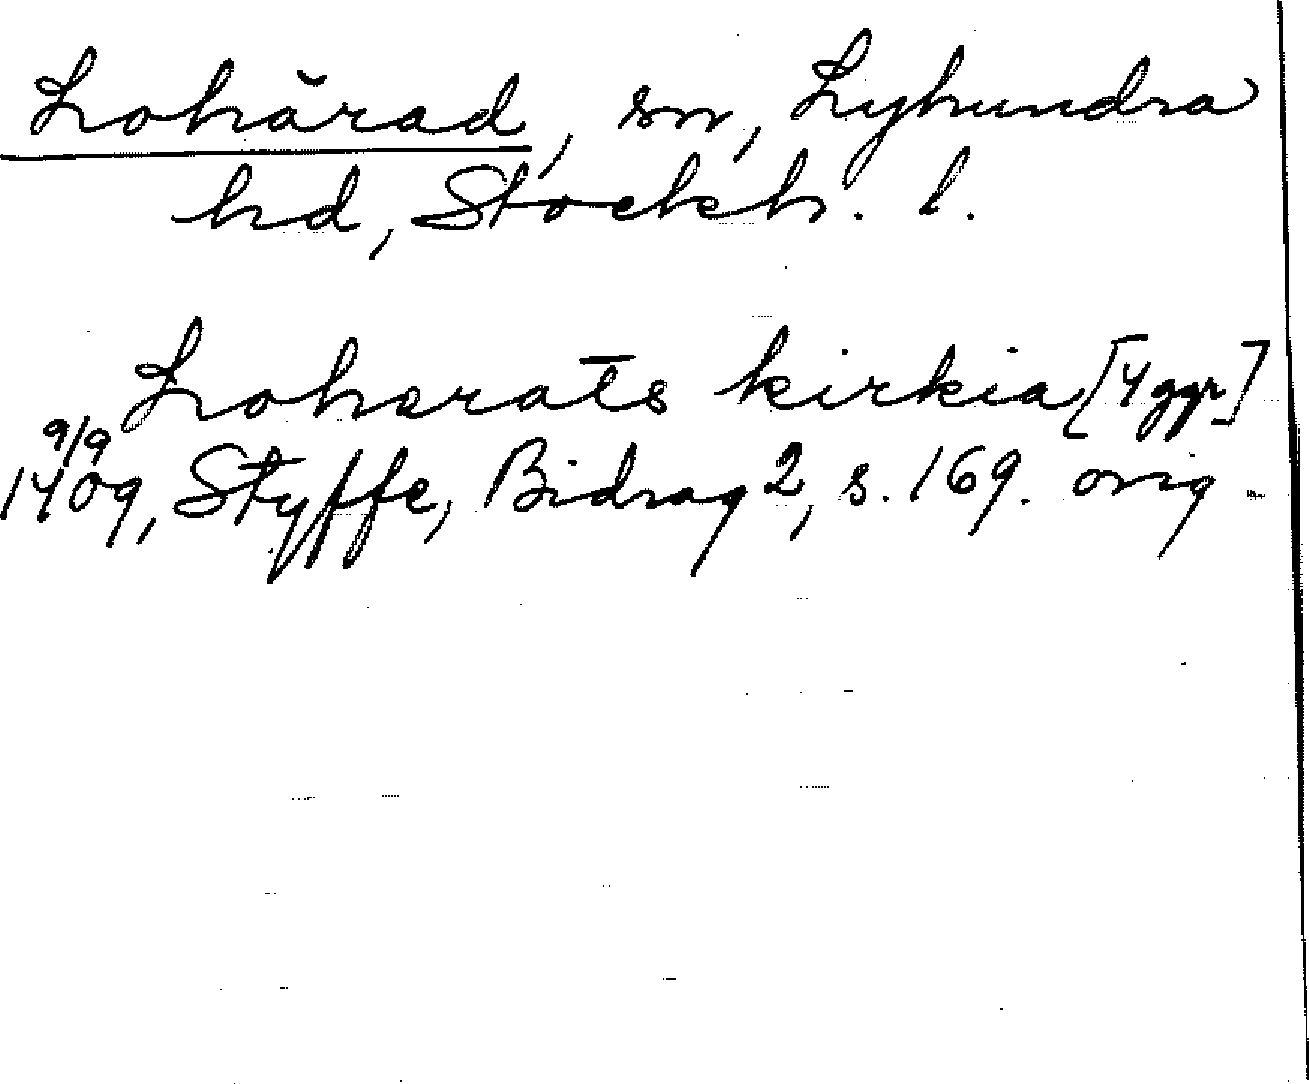 Lohärad, sn, Lyhundra
hd, Stockh. l.
Loharats kirkia [4 ggr]
9/9
1409, Styffe, Bidrag 2, s. 169. orig